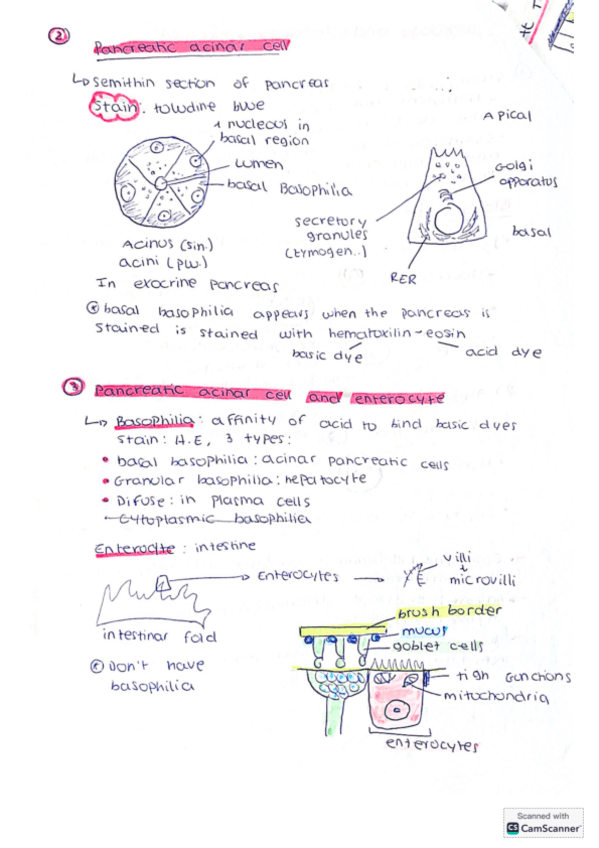 2 Pancreatic acinar cell
↳ semithin section of pancreas
Stain: toludine blue
1 nucleous in
basal region
lumen
basal Basophilia
Acinus (sin.)
acini (plu.)
Apical
Golgi
apparatus
secretory
granules
(tymogen..)
basal
RER
In exocrine pancreas
* basal basophilia appears when the pancreas is
stained is stained with hematoxilin-eosin
basic dye
acid dye
3 Pancreatic acinar cell and enterocyte
↳ Basophilia: affinity of acid to bind basic dyes
stain: H.E, 3 types:
• basal basophilia: acinar pancreatic cells
• Granular basophilia: hepatocyte
• Difuse: in plasma cells
• Cytoplasmic basophilia
Enterocite: intestine
Enterocytes
villi
microvilli
intestinar fold
brush border
mucus
goblet cells
tigh gunctions
mitochondria
enterocytes
Don't have
basophilia
Scanned with
CS CamScanner